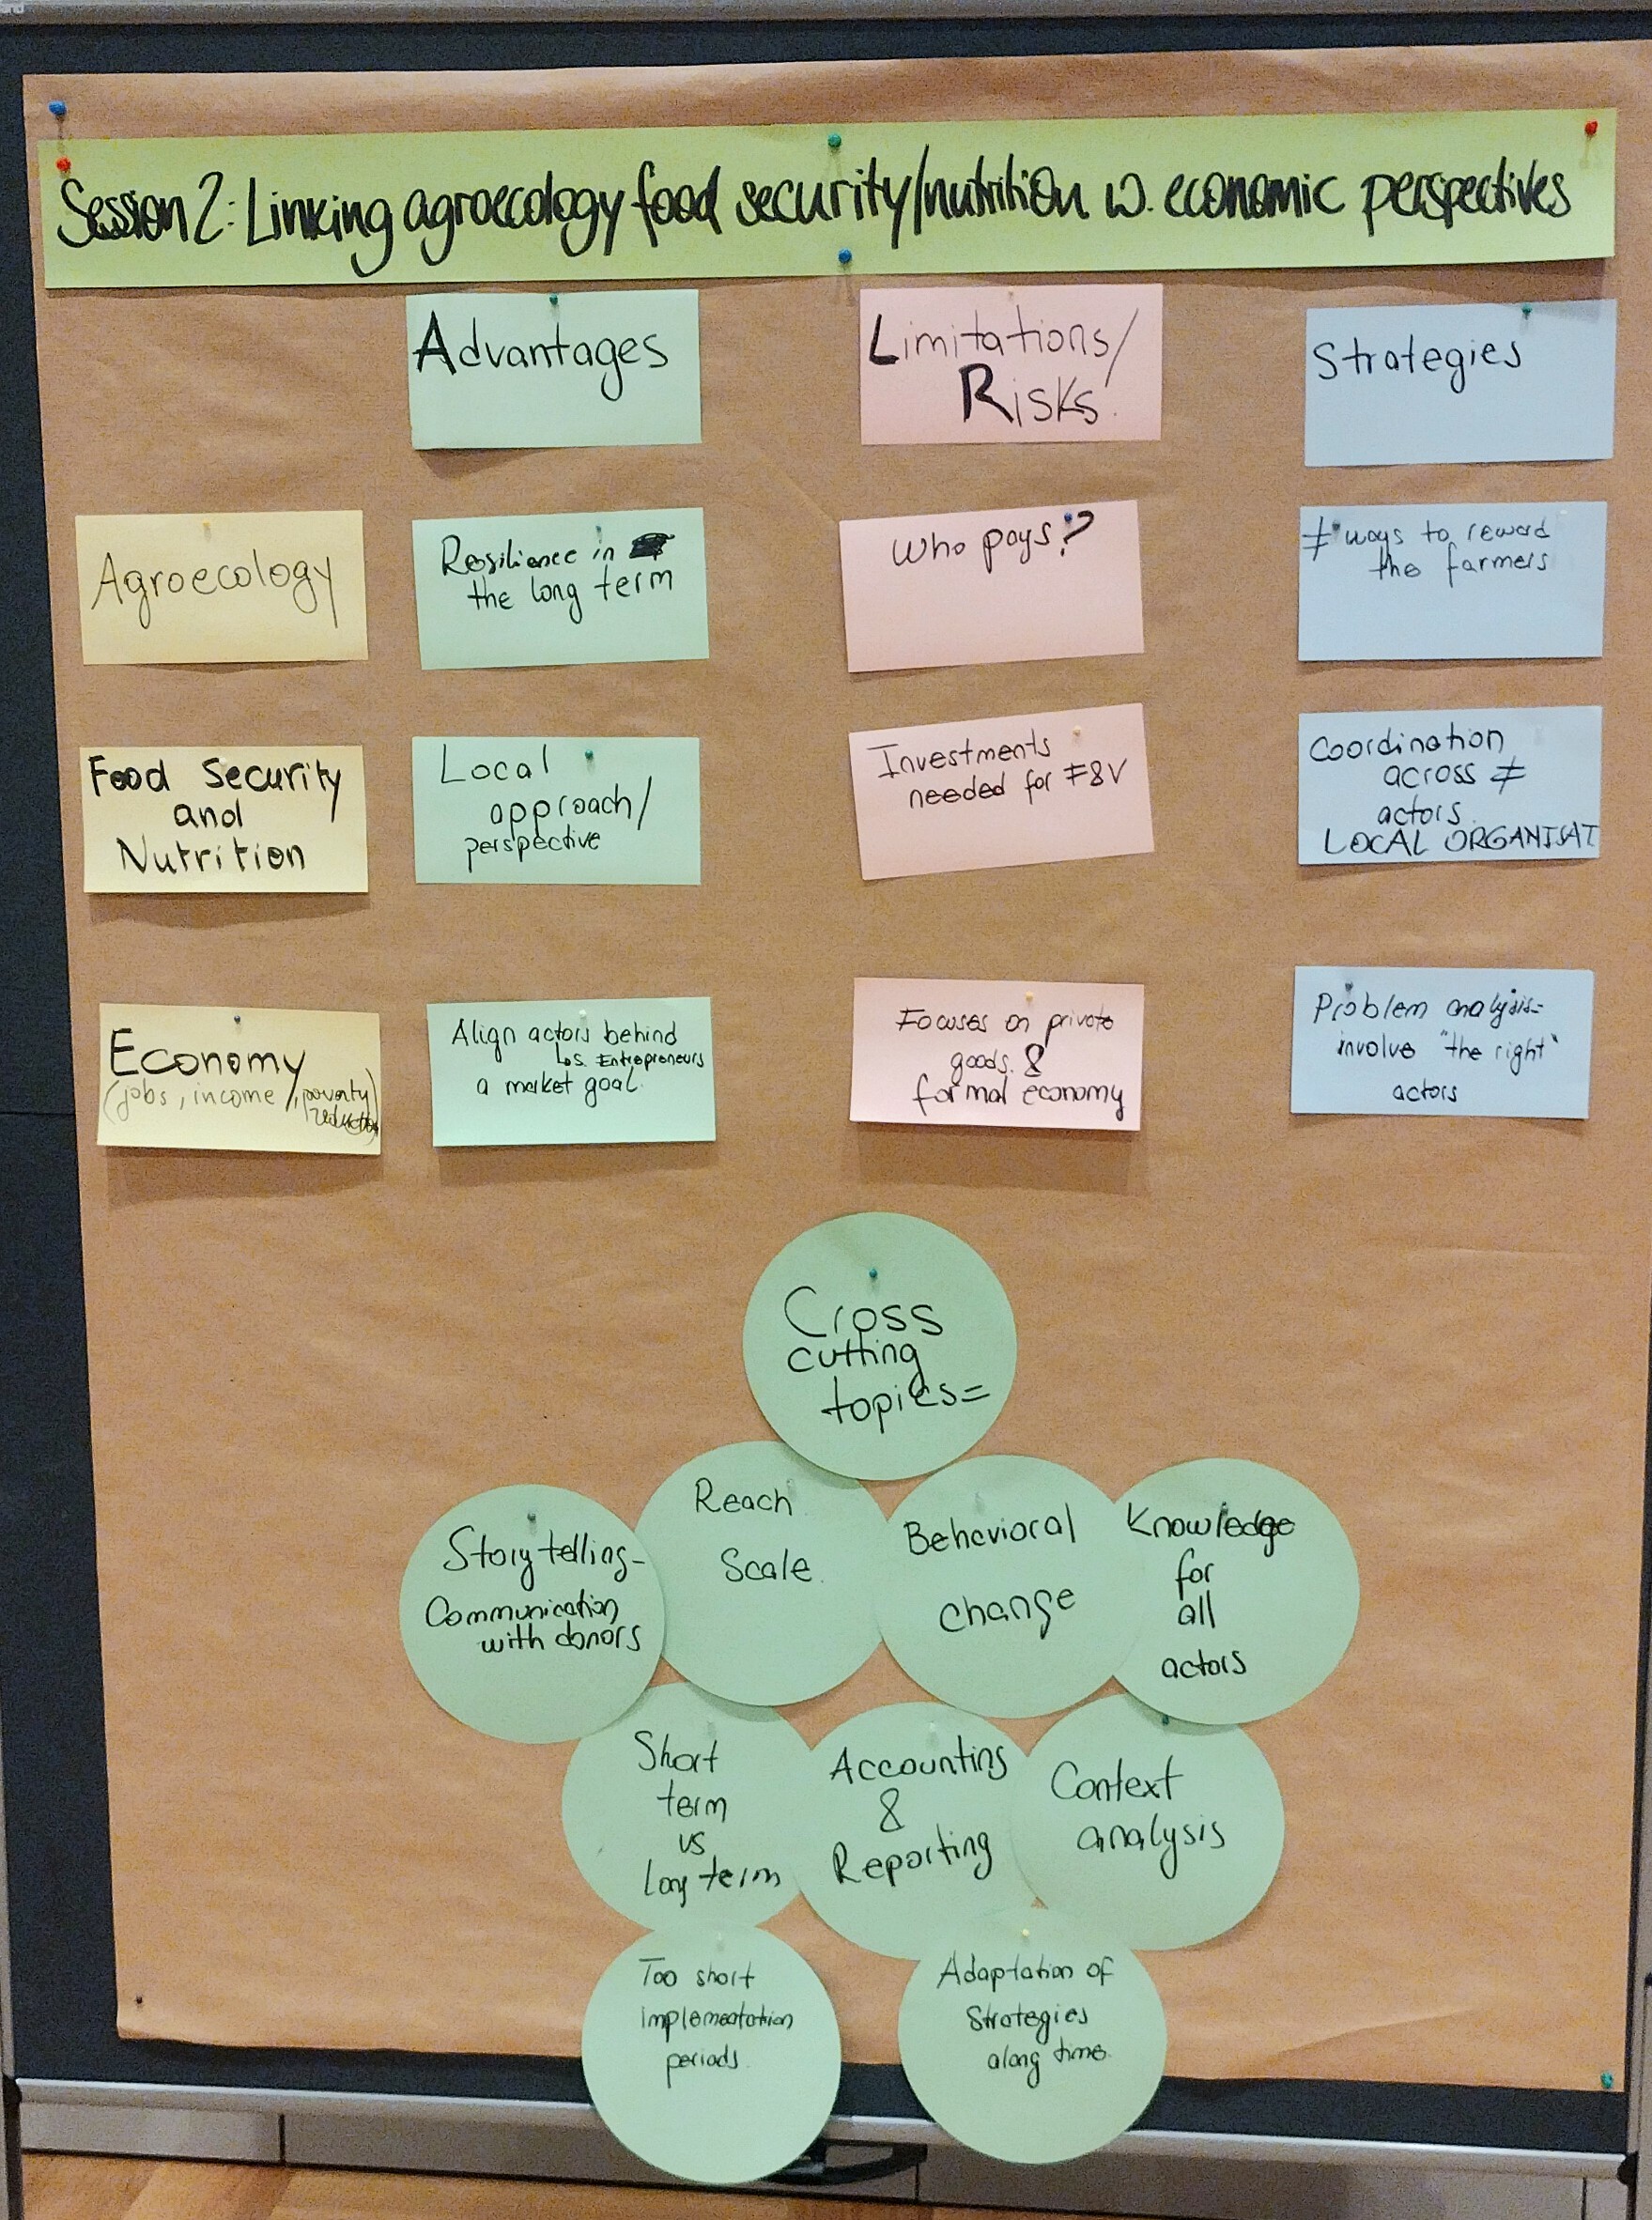 Session 2: Linking agroecology food security/nutrition w. economic perspectives
Advantages
Limitations/
Risks.
Strategies
Agroecology
Resilience in
the long term
Who pays?
≠ ways to reward
the farmers
Food Security
and
Nutrition
Local
approach/
perspective
Investments
needed for F&V
Coordination
across ≠
actors.
LOCAL ORGANISAT
Economy
(jobs, income, poverty
reduction)
Align actors behind
↳s. Entrepreneurs
a market goal.
Focuses on private
goods. &
formal economy
Problem analysis-
involve "the right"
actors
Cross
cutting
topics=
Storytelling-
Communication
with donors
Reach
Scale.
Behavioral
change
Knowledge
for
all
actors
Short
term
vs
Long term
Accounting
&
Reporting
Context
analysis
Too short
implementation
periods.
Adaptation of
Strategies
along time.